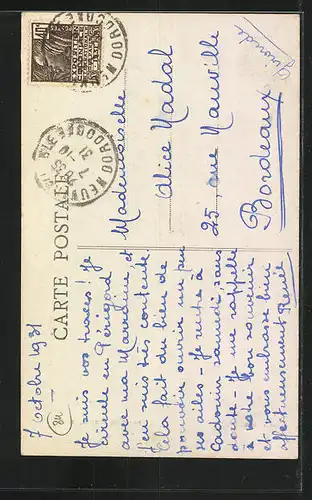 CARTE POSTALE
7 octobre 1931
Je suis vos traces! Je
circule en Périgord
avec ma Marraine et
j'en suis très contente.
Cela fait du bien de
pouvoir ouvrir un peu
ses ailes - Je rentre à
Cadouin samedi sans
doute - Je me rappelle
à votre bon souvenir
et vous embrasse bien
affectueusement Renée
Mademoiselle
Alice Nadal
25 rue Mauville
Bordeaux
Gironde
DORDOGNE
EXPOSITION
COLONIALE